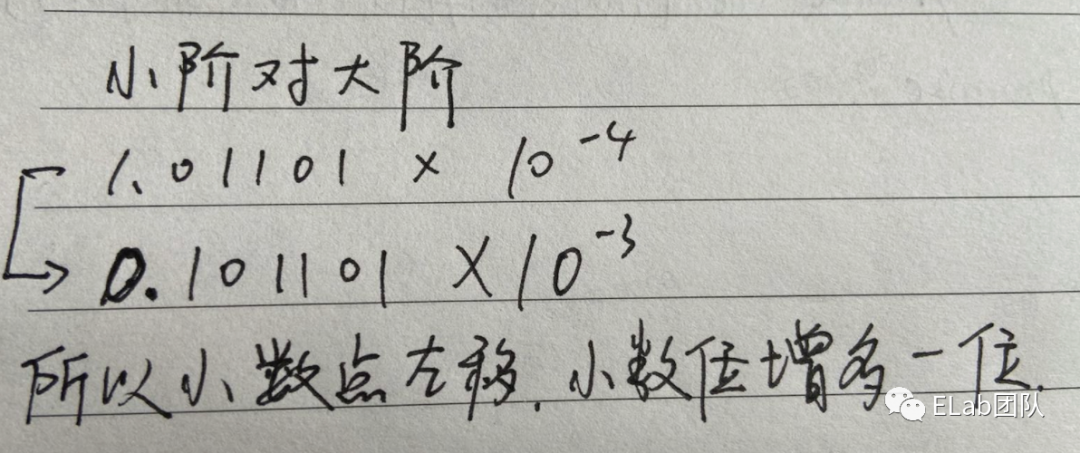 小阶对大阶
1.01101 × 10⁻⁴
0.101101 × 10⁻³
所以小数点左移.小数位增多一位.
ELab团队